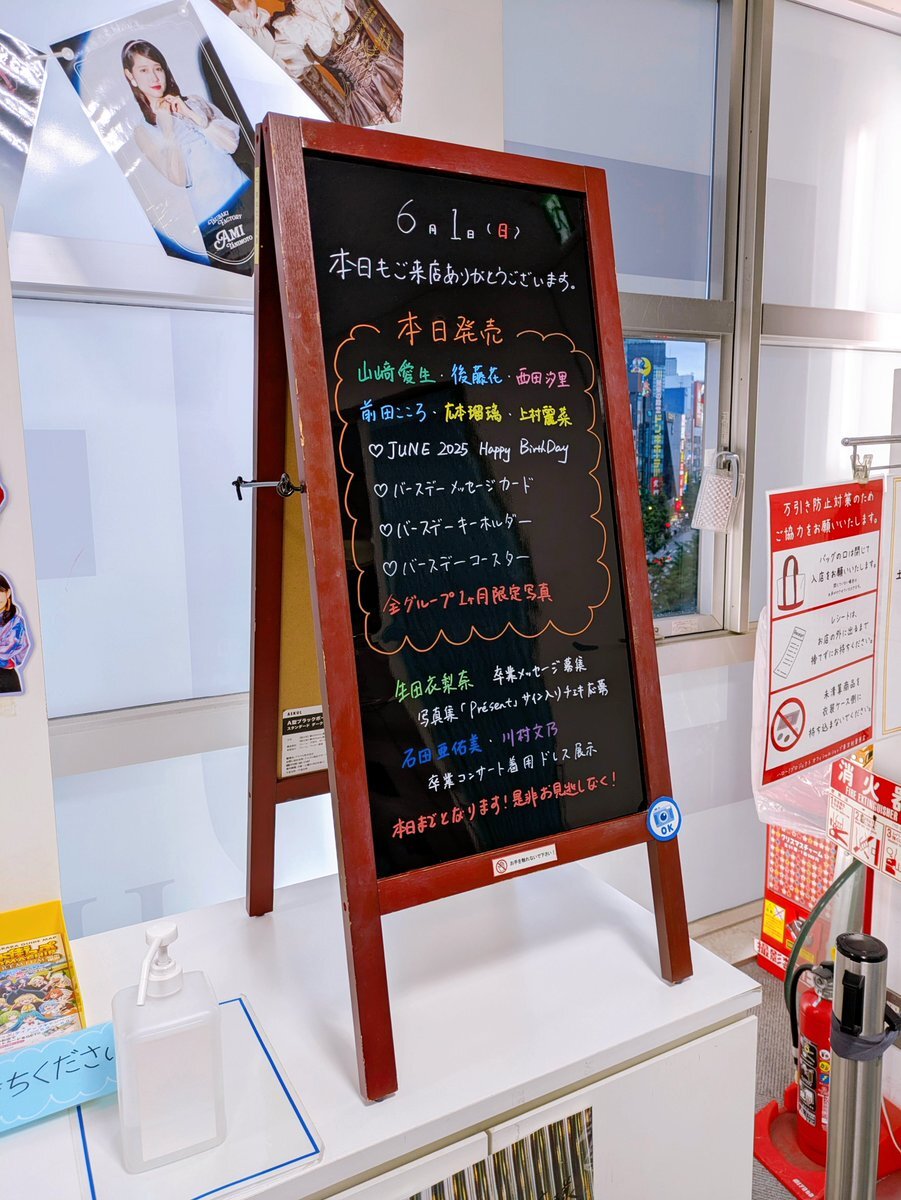 6月1日(日)
本日もご来店ありがとうございます。
本日発売
山﨑愛生・後藤花・西田汐里
前田こころ・広本瑠璃・上村麗菜
♡JUNE 2025 Happy BirthDay
♡バースデーメッセージカード
♡バースデーキーホルダー
♡バースデーコースター
全グループ1ヶ月限定写真
生田衣梨奈 卒業メッセージ募集
写真集「Présent」サイン入りチェキ応募
石田亜佑美・川村文乃
卒業コンサート着用ドレス展示
本日までとなります!是非お見逃しなく!
お手を触れないで下さい!
OK
TSUBAKI FACTORY
AMI
TANIMOTO
万引き防止対策のため
ご協力をお願いいたします。
バッグの口は閉じて
入店をお願いいたします。
レシートは、
お店の外に出るまで
捨てずにお持ちください。
未清算商品を
衣装ケース側に
持ち込まないでください。
消火器
FIRE EXTINGUISHER
クリスマスチャーム
ちください
A型ブラックボー